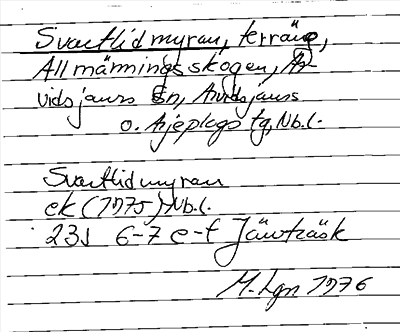 Svartlidmyran, terräng,
Allmänningsskogen, Ar-
vidsjaurs Sn, Arvidsjaurs
o. Arjeplogs tg, Nb.l.
Svartlidmyran
ek (1975) Nb.l.
23J 6-7 e-f Järvträsk
M. Lgn 1976